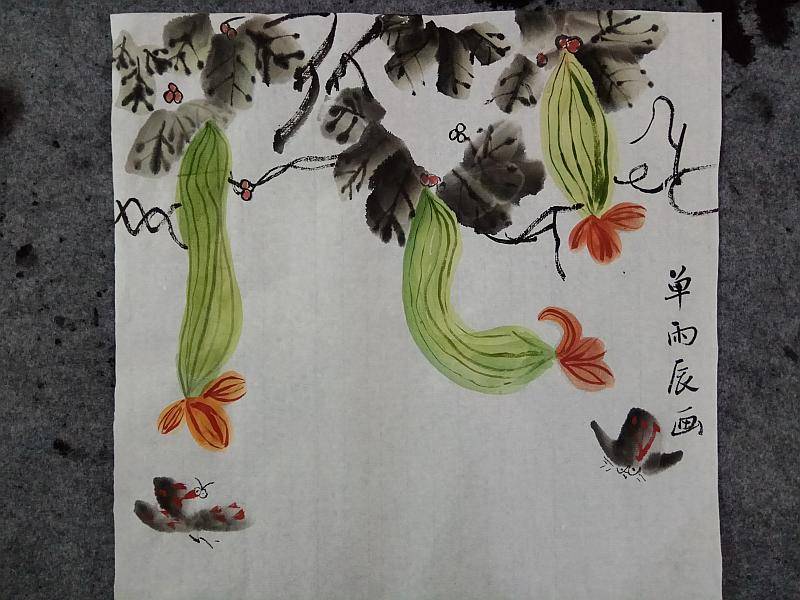 单雨辰画